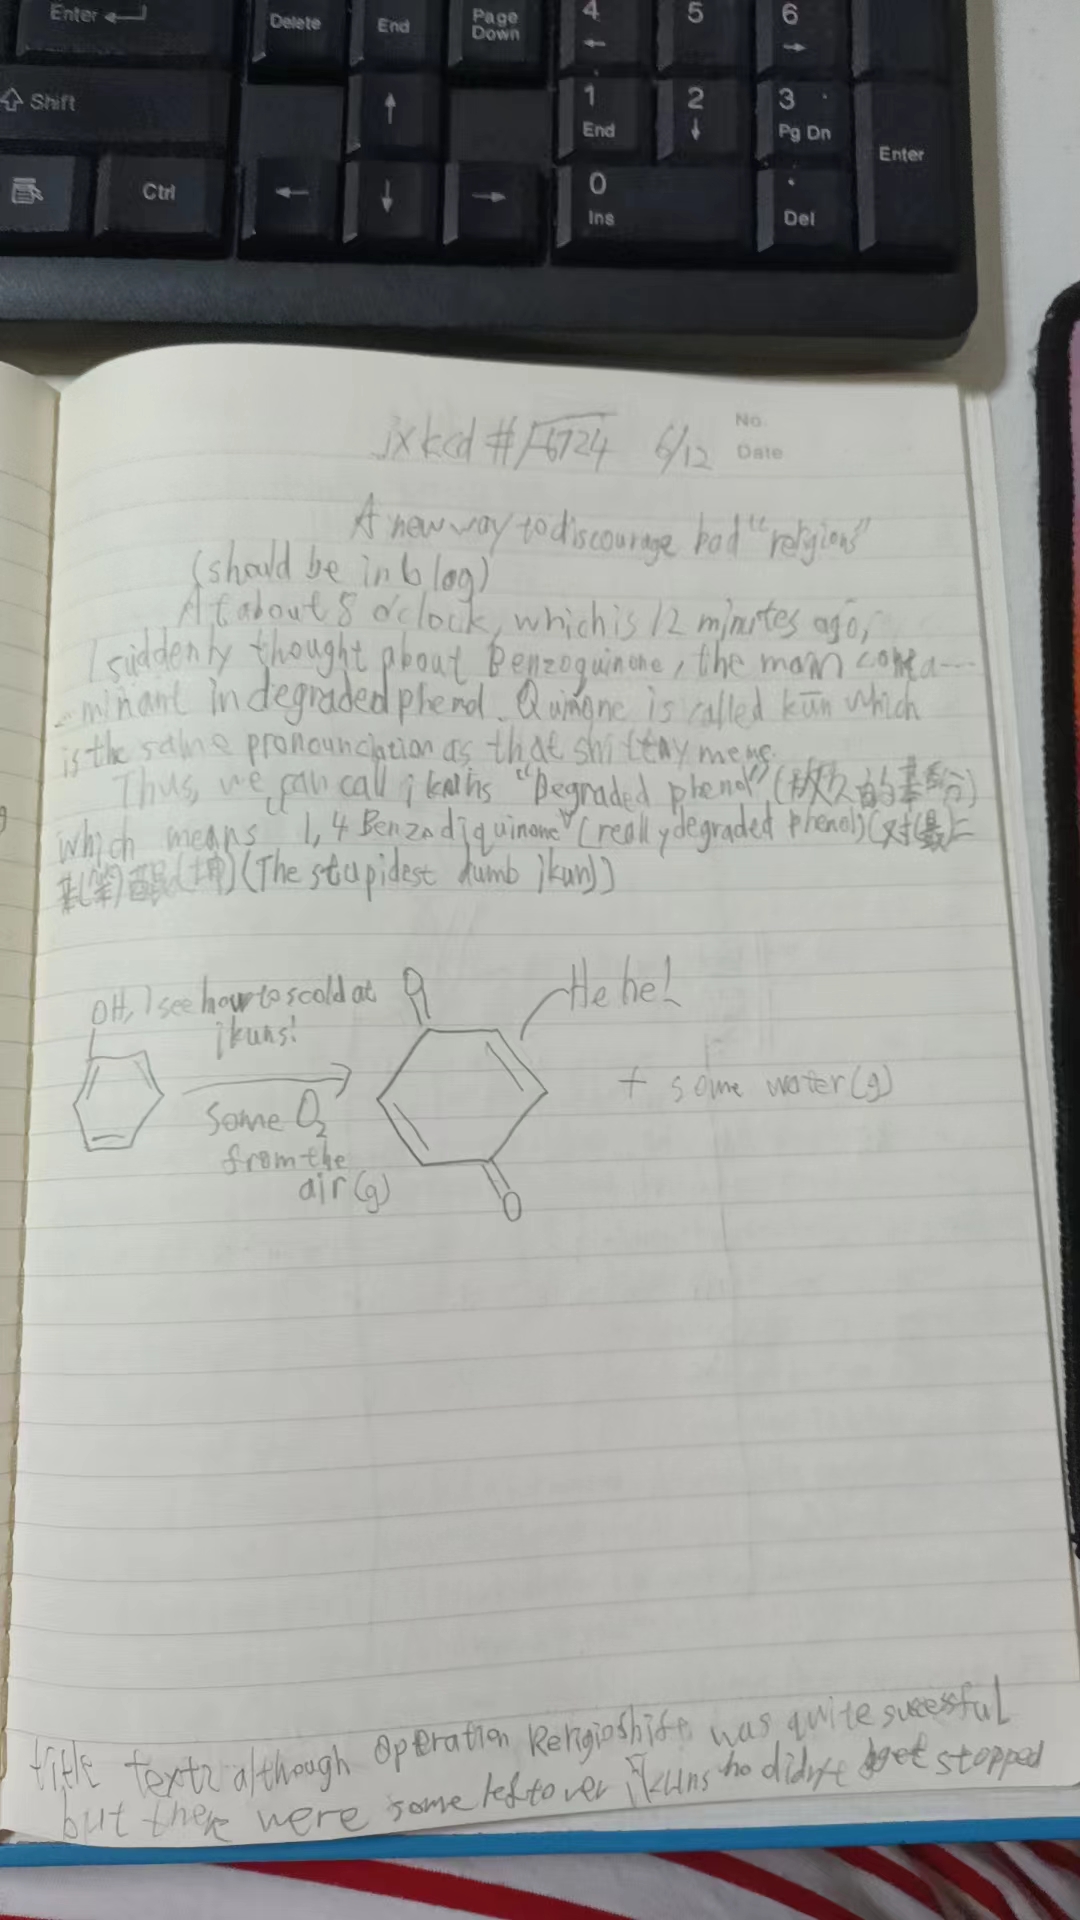 Enter
Delete
End
Page Down
4
5
6
Shift
1 End
2
3 Pg Dn
Enter
Ctrl
0 Ins
. Del
No.
jxkcd #√-6724 6/12 Date
A new way to discourage bad "religions"
(should be in blog)
At about 8 o'clock, which is 12 minutes ago,
I suddenly thought about Benzoquinone, the main conta-
-minant in degraded phenol. Quinone is called kūn which
is the same pronounciation as that shittay meme.
Thus, we can call ikuns "Degraded phenol" (放久的苯酚)
which means "1,4 Benzodiquinone" (really degraded phenol)(对(最)二
苯(笨)醌(坤)(The stupidest dumb ikun))
OH, I see how to scold at
ikuns!
Some O2
from the
air (g)
O
O
Hehe!
+ some water(g)
title text: although Operation Religioshift was quite sucessful
but there were some leftover ikuns ho didn't get stopped